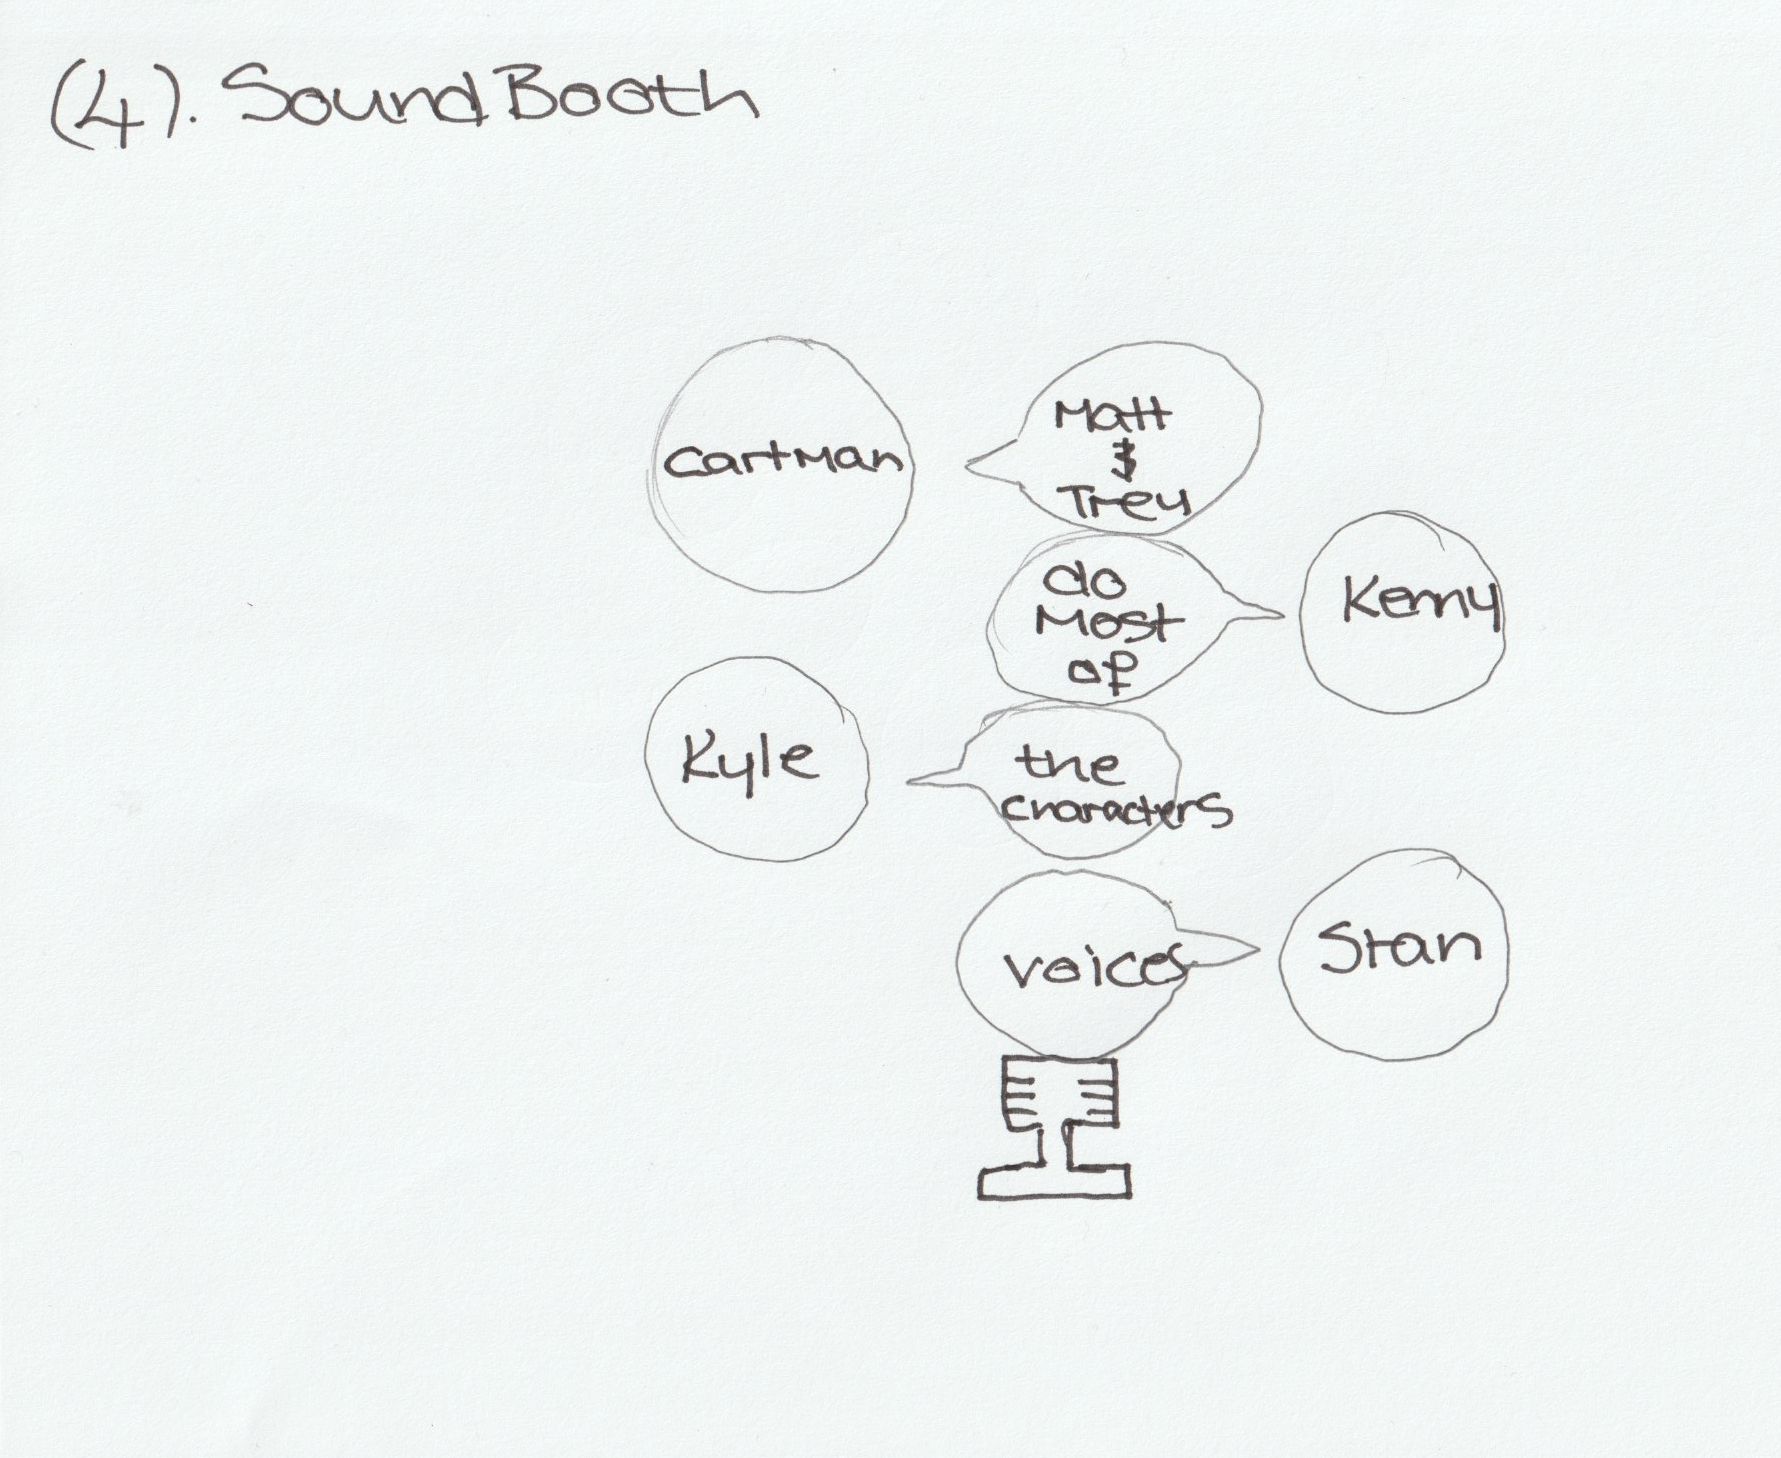 (4). Sound Booth
Cartman
Matt
&
Trey
do
Most
of
Kenny
Kyle
the
characters
voices
Stan